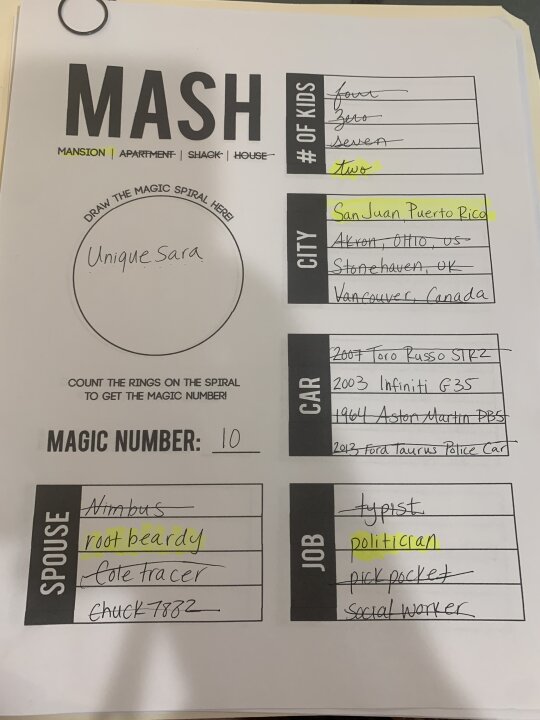 MASH
MANSION | APARTMENT | SHACK | HOUSE
DRAW THE MAGIC SPIRAL HERE!
Unique Sara
COUNT THE RINGS ON THE SPIRAL
TO GET THE MAGIC NUMBER!
MAGIC NUMBER: 10
# OF KIDS
four
zero
seven
two
CITY
San Juan, Puerto Rico
Akron, OHIO, US
Stonehaven, UK
Vancouver, Canada
CAR
2007 Toro Rosso STR2
2003 Infiniti G35
1964 Aston Martin DB5
2013 Ford Taurus Police Car
SPOUSE
Nimbus
root beardy
Cole tracer
Chuck 7882
JOB
typist
politician
pick pocket
social worker